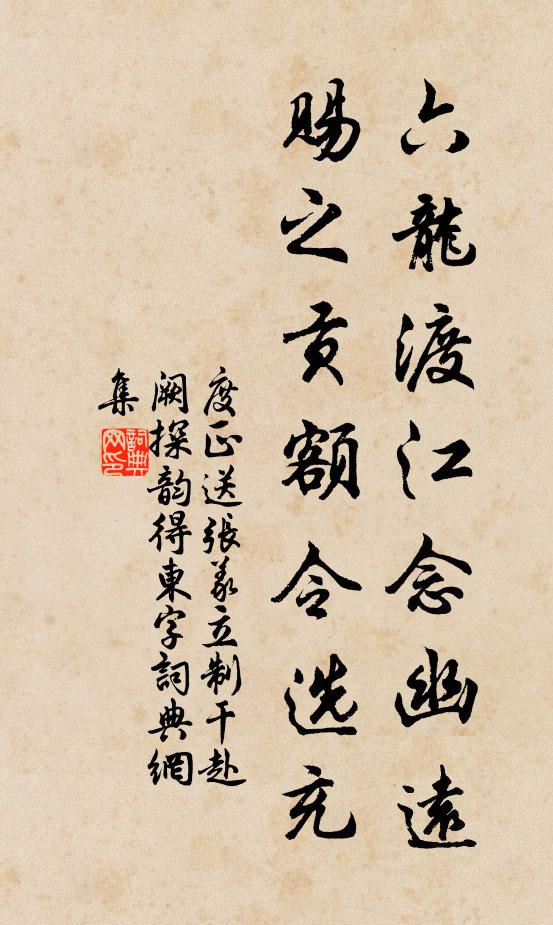 六龍渡江念幽遠
賜之貢額令選充
度正送張義立制干赴
闕探韵得東字詞典網
集
詞典
网印